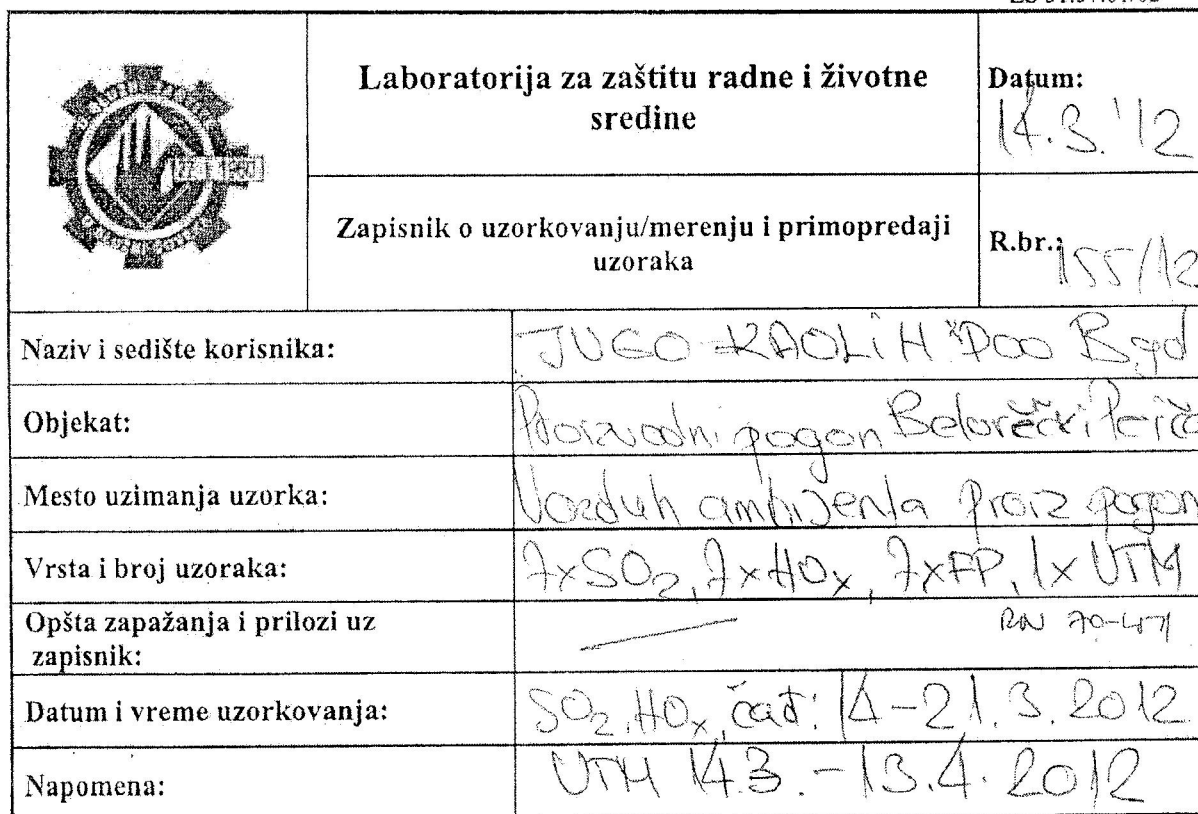 Laboratorija za zaštitu radne i životne
sredine
Datum:
14.3.'12
Zapisnik o uzorkovanju/merenju i primopredaji
uzoraka
R.br.:
155/12
Naziv i sedište korisnika:
JUGO-KAOLIN DOO Bgd
Objekat:
Proizvodni pogon Belorečki
Mesto uzimanja uzorka:
Vazduh ambijenta proiz pogon
Vrsta i broj uzoraka:
7xSO₂, 7xNOₓ, 7xFP, 1xUTM
Opšta zapažanja i prilozi uz
zapisnik:
RN 70-
Datum i vreme uzorkovanja:
SO₂, NOₓ, čađ: 14-21.3.2012
Napomena:
UTM 14.3.-13.4.2012